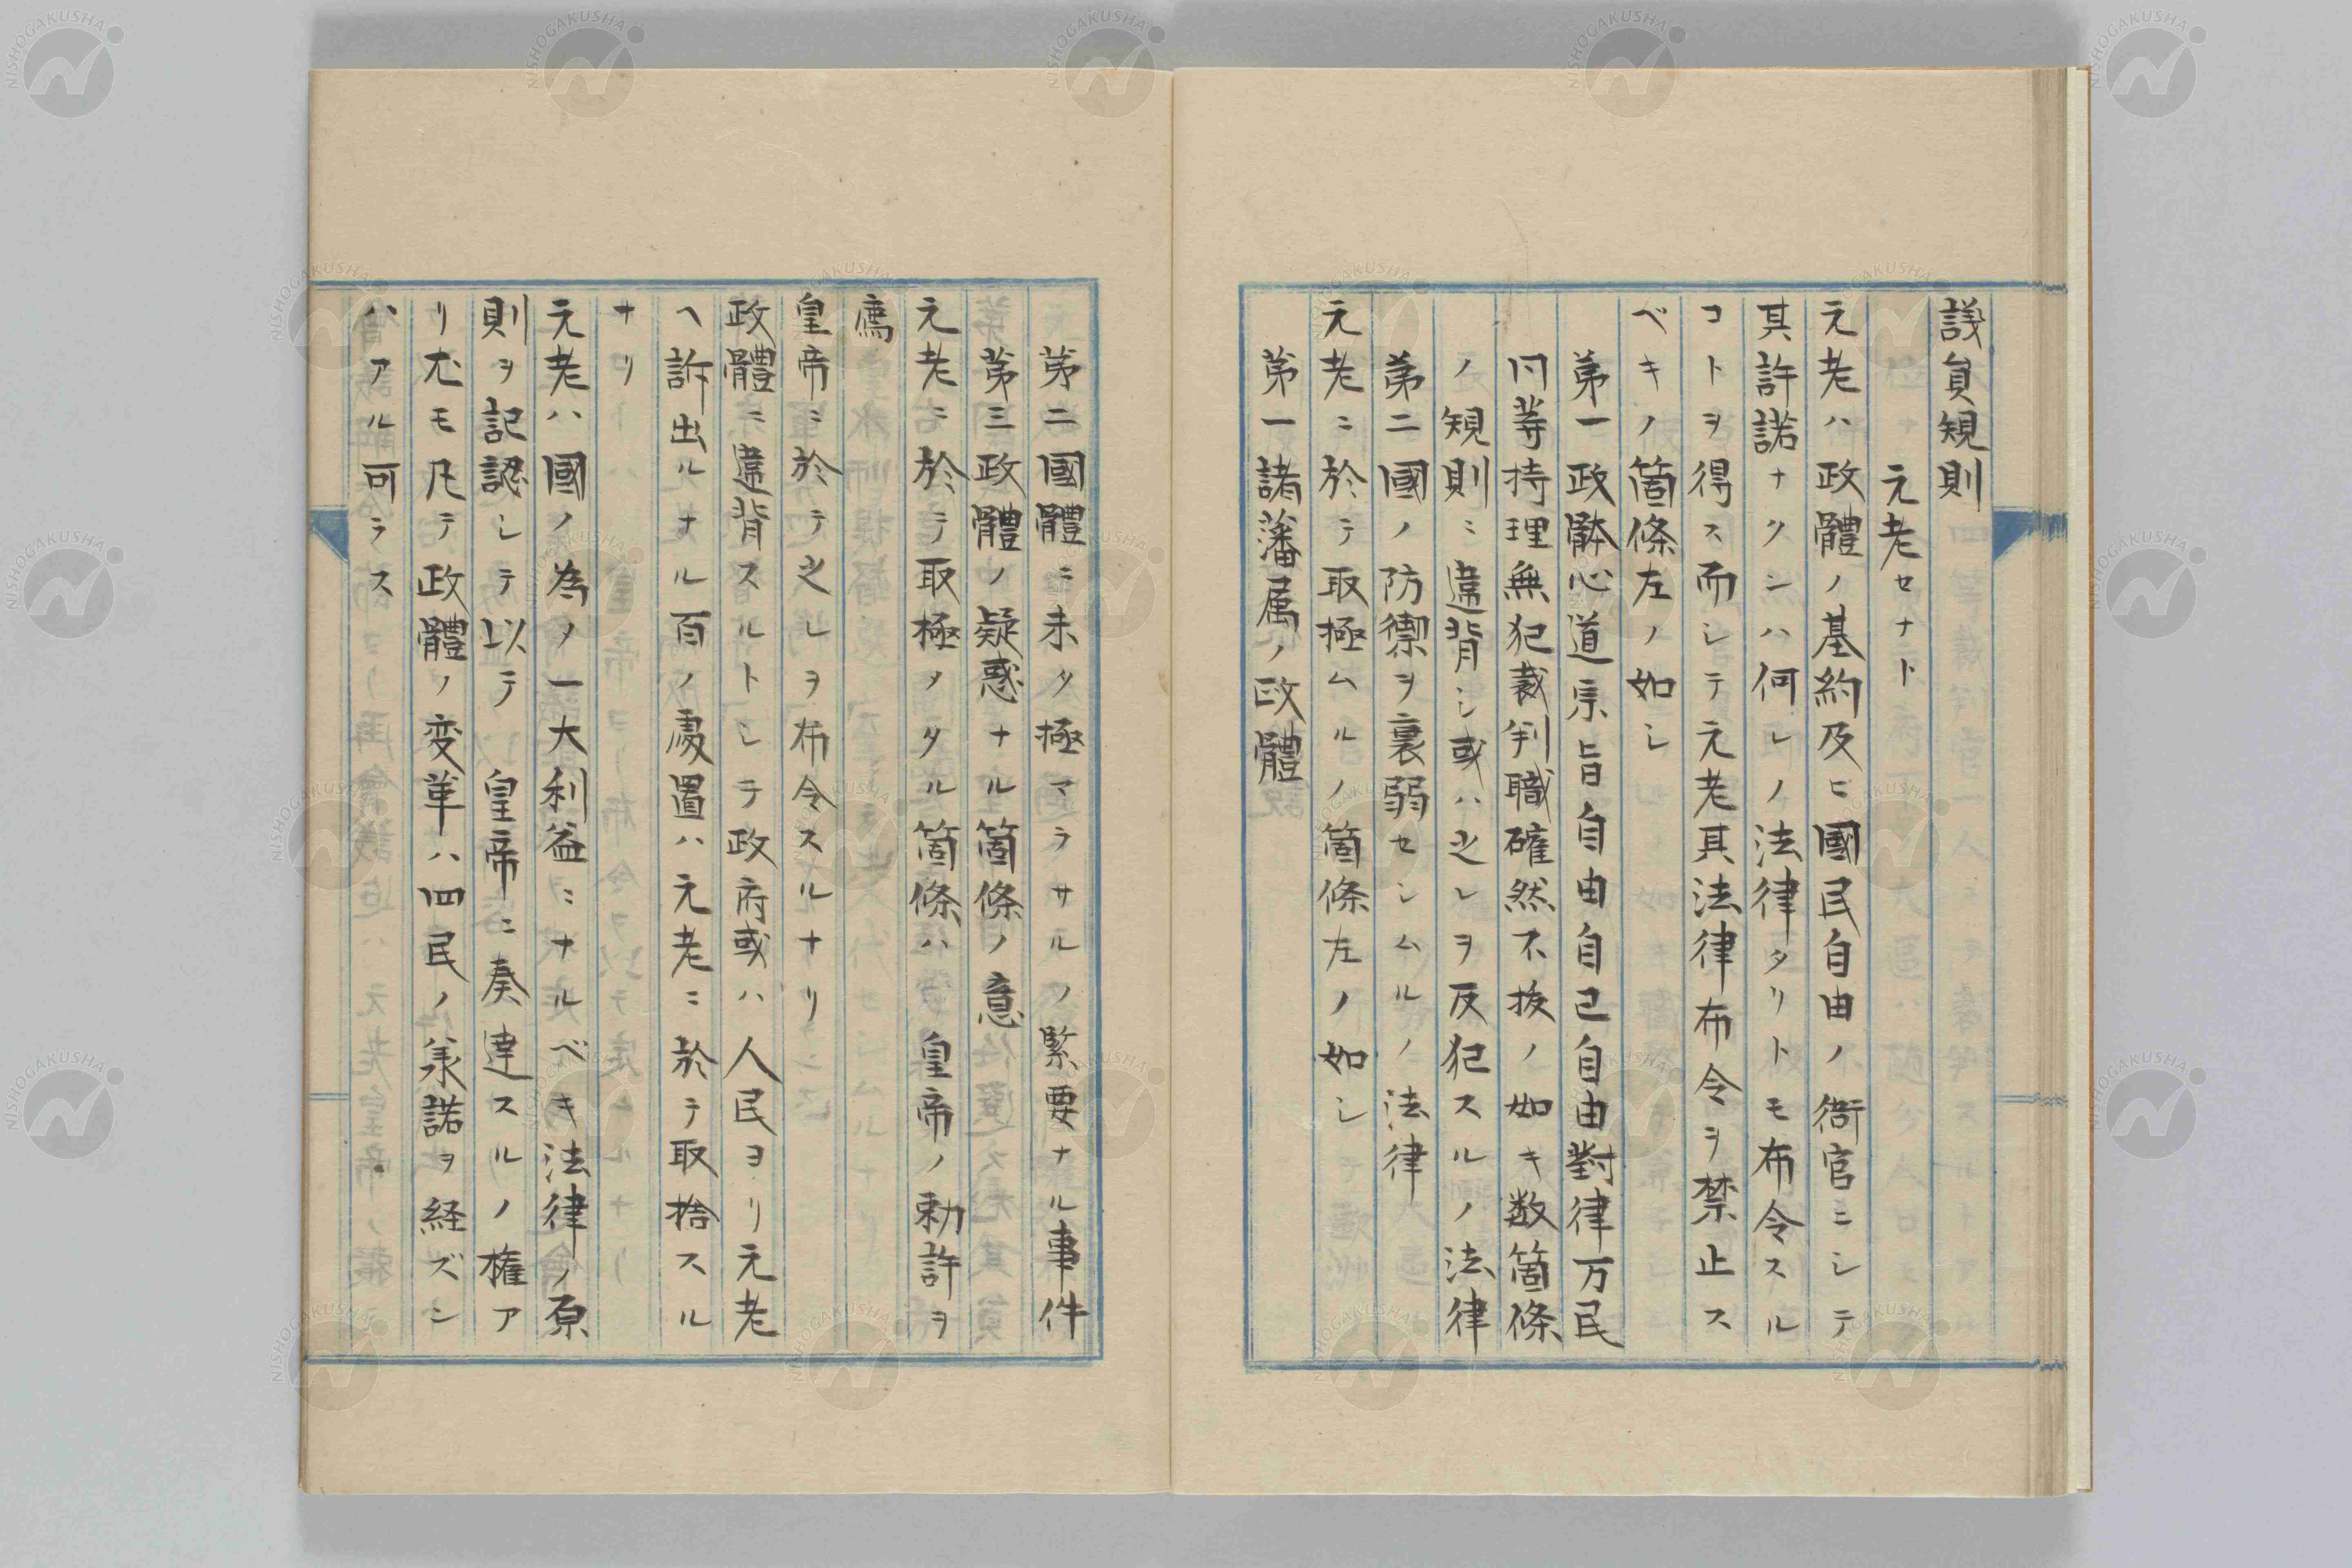 議員規則
元老セナト
元老ハ政體ノ基約及ヒ國民自由ノ衙官ニシテ
其許諾ナクンハ何レノ法律タリトモ布令スル
コトヲ得ス而シテ元老其法律布令ヲ禁止ス
ベキノ箇條左ノ如シ
第一政躰心道宗旨自由自己自由對律万民
同等持理無犯裁判職確然不抜ノ如キ数箇條
ノ規則ニ違背シ或ハ之レヲ反犯スルノ法律
第二國ノ防禦ヲ裏弱セシムルノ法律
元老ニ於テ取極ムルノ箇條左ノ如シ
第一諸藩属ノ政體
第二國體ニ未タ極マラサルノ緊要ナル事件
第三政體ノ疑惑ナル箇條ノ意
元老ニ於テ取極メタル箇條ハ 皇帝ノ勅許ヲ
為
皇帝ニ於テ之レヲ布令スルナリ
政體ニ違背スルトシテ政府或ハ人民ヨリ元老
ヘ訴出ルナル百ノ處置ハ元老ニ於テ取捨スル
ナリ
元老ハ國ノ為メ一大利益ニナルベキ法律ノ原
則ヲ記認シテ以テ 皇帝ニ奏達スルノ権ア
リ尤モ凡テ政體ノ変革ハ四民ノ羕諾ヲ経ズン
ハアル可ラス
NISHOGAKUSHA